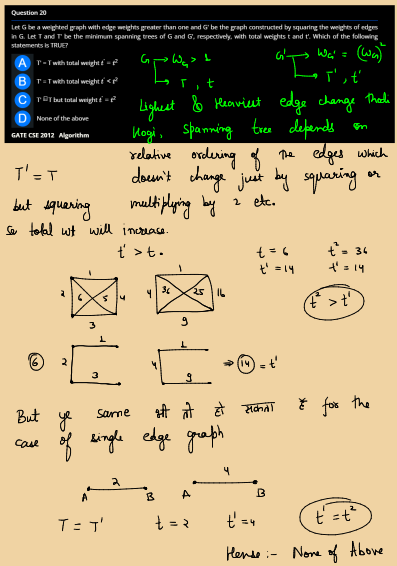 Question 20
Let G be a weighted graph with edge weights greater than one and G' be the graph constructed by squaring the weights of edges
in G. Let T and T' be the minimum spanning trees of G and G', respectively, with total weights t and t'. Which of the following
statements is TRUE?
A T' = T with total weight t' = t²
B T' = T with total weight t' < t²
C T' ⊡ T but total weight t' = t²
D None of the above
GATE CSE 2012 Algorithm
G → W_G > 1
→ T, t
G' → W_G' = (W_G)²
→ T', t'
Lighest & Heaviest edge change
Hogi, spanning tree depends on
relative ordering of the edges which
T' = T doesn't change just by squaring or
but squaring multiplying by 2 etc.
se total wt will increase.
t' > t.
t = 6 t² = 36
t' = 14 t' = 14
t² > t'
1
2 6 5 4
3
1
4 36 25 16
9
6 2 1 3
4 1 9 ⇒ 14 = t'
But ye same भी तो हो सकता है for the
case of single edge graph
2
A B
4
A B
T = T' t = 2 t' = 4 t' = t²
Hense :- None of Above